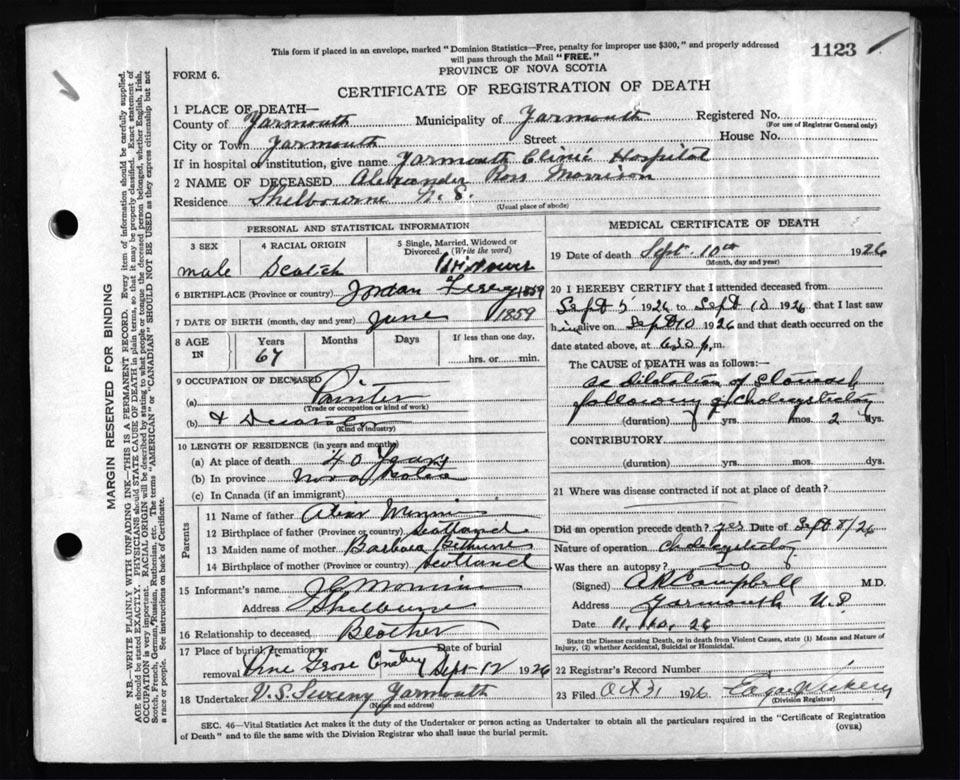 This form if placed in an envelope, marked "Dominion Statistics—Free, penalty for improper use $300," and properly addressed
will pass through the Mail "FREE."
1123
FORM 6.
PROVINCE OF NOVA SCOTIA
CERTIFICATE OF REGISTRATION OF DEATH
MARGIN RESERVED FOR BINDING
N.B.—WRITE PLAINLY WITH UNFADING INK—THIS IS A PERMANENT RECORD. Every item of information should be carefully supplied.
AGE should be stated EXACTLY. PHYSICIANS should STATE CAUSE OF DEATH in plain terms, so that it may be properly classified. Exact statement of
OCCUPATION is very important. RACIAL ORIGIN will be described by stating to what people or tongue the deceased person belonged, whether English, Irish,
Scotch, French, German, Russian, Ruthenian, etc. The terms "AMERICAN" or "CANADIAN" SHOULD NOT BE USED as they express citizenship but not
a race or people. See instructions on back of Certificate.
1 PLACE OF DEATH—
County of Yarmouth Municipality of Yarmouth Registered No.
(For use of Registrar General only)
City or Town Yarmouth Street House No.
If in hospital or institution, give name Yarmouth Clinic Hospital
2 NAME OF DECEASED Alexander Ross Morrison
Residence Shelbourne N.S.
(Usual place of abode)
PERSONAL AND STATISTICAL INFORMATION
3 SEX 4 RACIAL ORIGIN 5 Single, Married, Widowed or
Divorced. (Write the word)
male Scotch Widower
6 BIRTHPLACE (Province or country) Jordan Ferry 1859
7 DATE OF BIRTH (month, day and year) June 1859
8 AGE IN Years Months Days If less than one day,
67 hrs. or min.
9 OCCUPATION OF DECEASED
(a) Painter
(Trade or occupation or kind of work)
(b) & Decorator
(Kind of industry)
10 LENGTH OF RESIDENCE (in years and months)
(a) At place of death 40 Years
(b) In province Nova Scotia
(c) In Canada (if an immigrant)
Parents
11 Name of father Alex
12 Birthplace of father (Province or country) Scotland
13 Maiden name of mother Barbara Bethune
14 Birthplace of mother (Province or country) Scotland
15 Informant's name Morrison
Address Shelburne
16 Relationship to deceased Brother
17 Place of burial, cremation or removal Date of burial
Pine Grove Cemetery Sept 12 1926
18 Undertaker V.S. Sweeny Yarmouth
(Name and address)
MEDICAL CERTIFICATE OF DEATH
19 Date of death Sept. 10th 1926
(Month, day and year)
20 I HEREBY CERTIFY that I attended deceased from
Sept 5 1926 to Sept 10 1926 that I last saw
him alive on Sept 10 1926 and that death occurred on
date stated above, at 6.30 p.m.
The CAUSE OF DEATH was as follows:
ac dilatation of stomach
following
(duration) yrs. mos. 2 dys.
CONTRIBUTORY
(duration) yrs. mos. dys.
21 Where was disease contracted if not at place of death?
Did an operation precede death? yes Date of Sept 8/26
Nature of operation
Was there an autopsy? no
(Signed) A R Campbell M.D.
Address Yarmouth N.S.
Date 11, 26
State the Disease causing Death, or in death from Violent Causes, state (1) Means and Nature of
Injury, (2) whether Accidental, Suicidal or Homicidal.
22 Registrar's Record Number
23 Filed Oct 31 1926
(Division Registrar)
SEC. 46—Vital Statistics Act makes it the duty of the Undertaker or person acting as Undertaker to obtain all the particulars required in the "Certificate of Registration
of Death" and to file the same with the Division Registrar who shall issue the burial permit.
(OVER)